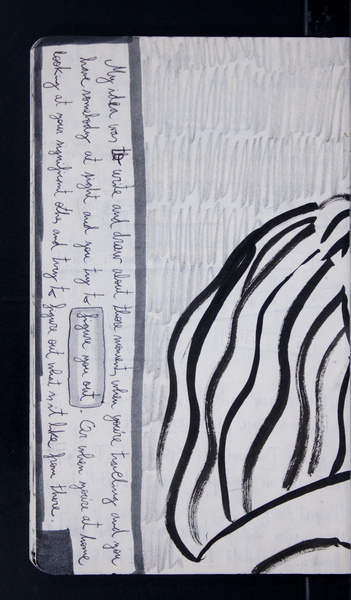 My idea was to write and draw about those moments when you're traveling and you
have somebody at sight and you try to figure you out. Or when you're at home
looking at your significant other and try to figure out what is it like from there.